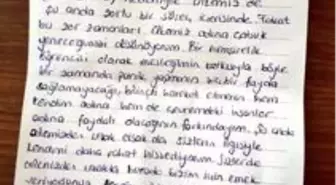 ülkemiz de
şu anda zorlu bir süreç içerisinde. Fakat
bu zor zamanları. Ülkemiz adına çabuk
yeneceğimizi düşünüyorum. Bir hemşirelik
öğrencisi olarak mesleğimin katkısıyla böyle
bir zamanda panik yapmanın hiçbir fayda
sağlamayacağı, bilinçli hareket etmenin hem
kendim adına hem de çevremdeki insanlar
adına faydalı olacağının farkındayım. Şu anda
ailemizden uzak olsak da sizlerin ilgisiyle
kendimi daha rahat hissediyorum. Sizlerde
ailenizden uzakta burada bizim için emek
veriyorsunuz